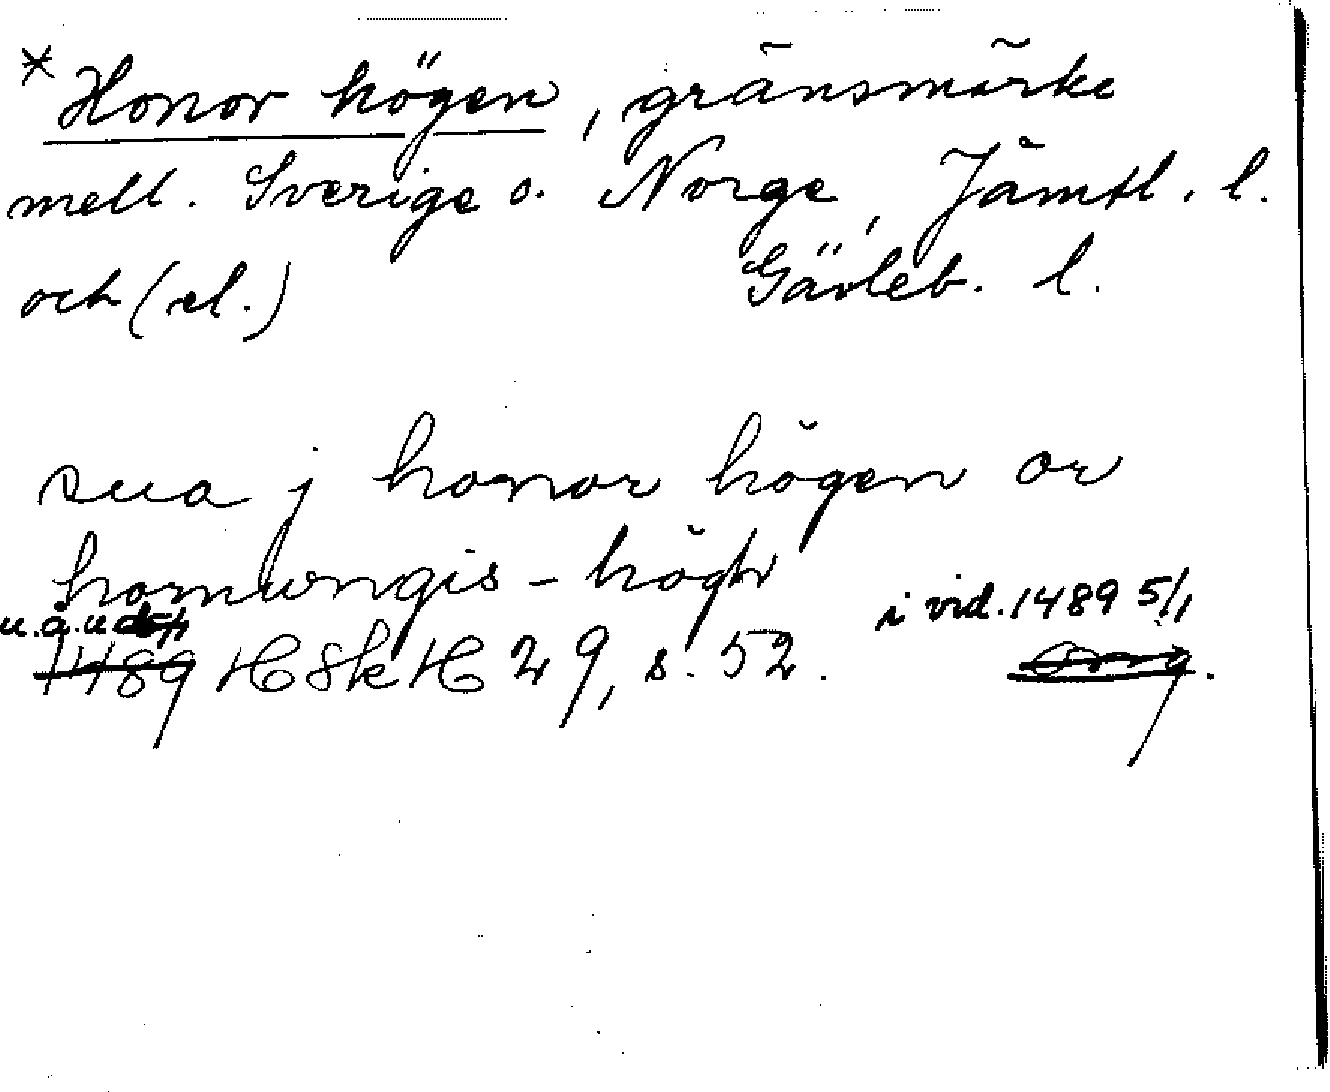 * Honor högen, gränsmärke
mell. Sverige o. Norge, Jämtl. l.
och (el.) Gävleb. l.
sua j honor högen or
hornungis-högh
u.å.u d. i vid. 1489 5/1
1489 HSkH 29, s. 52. Orig.